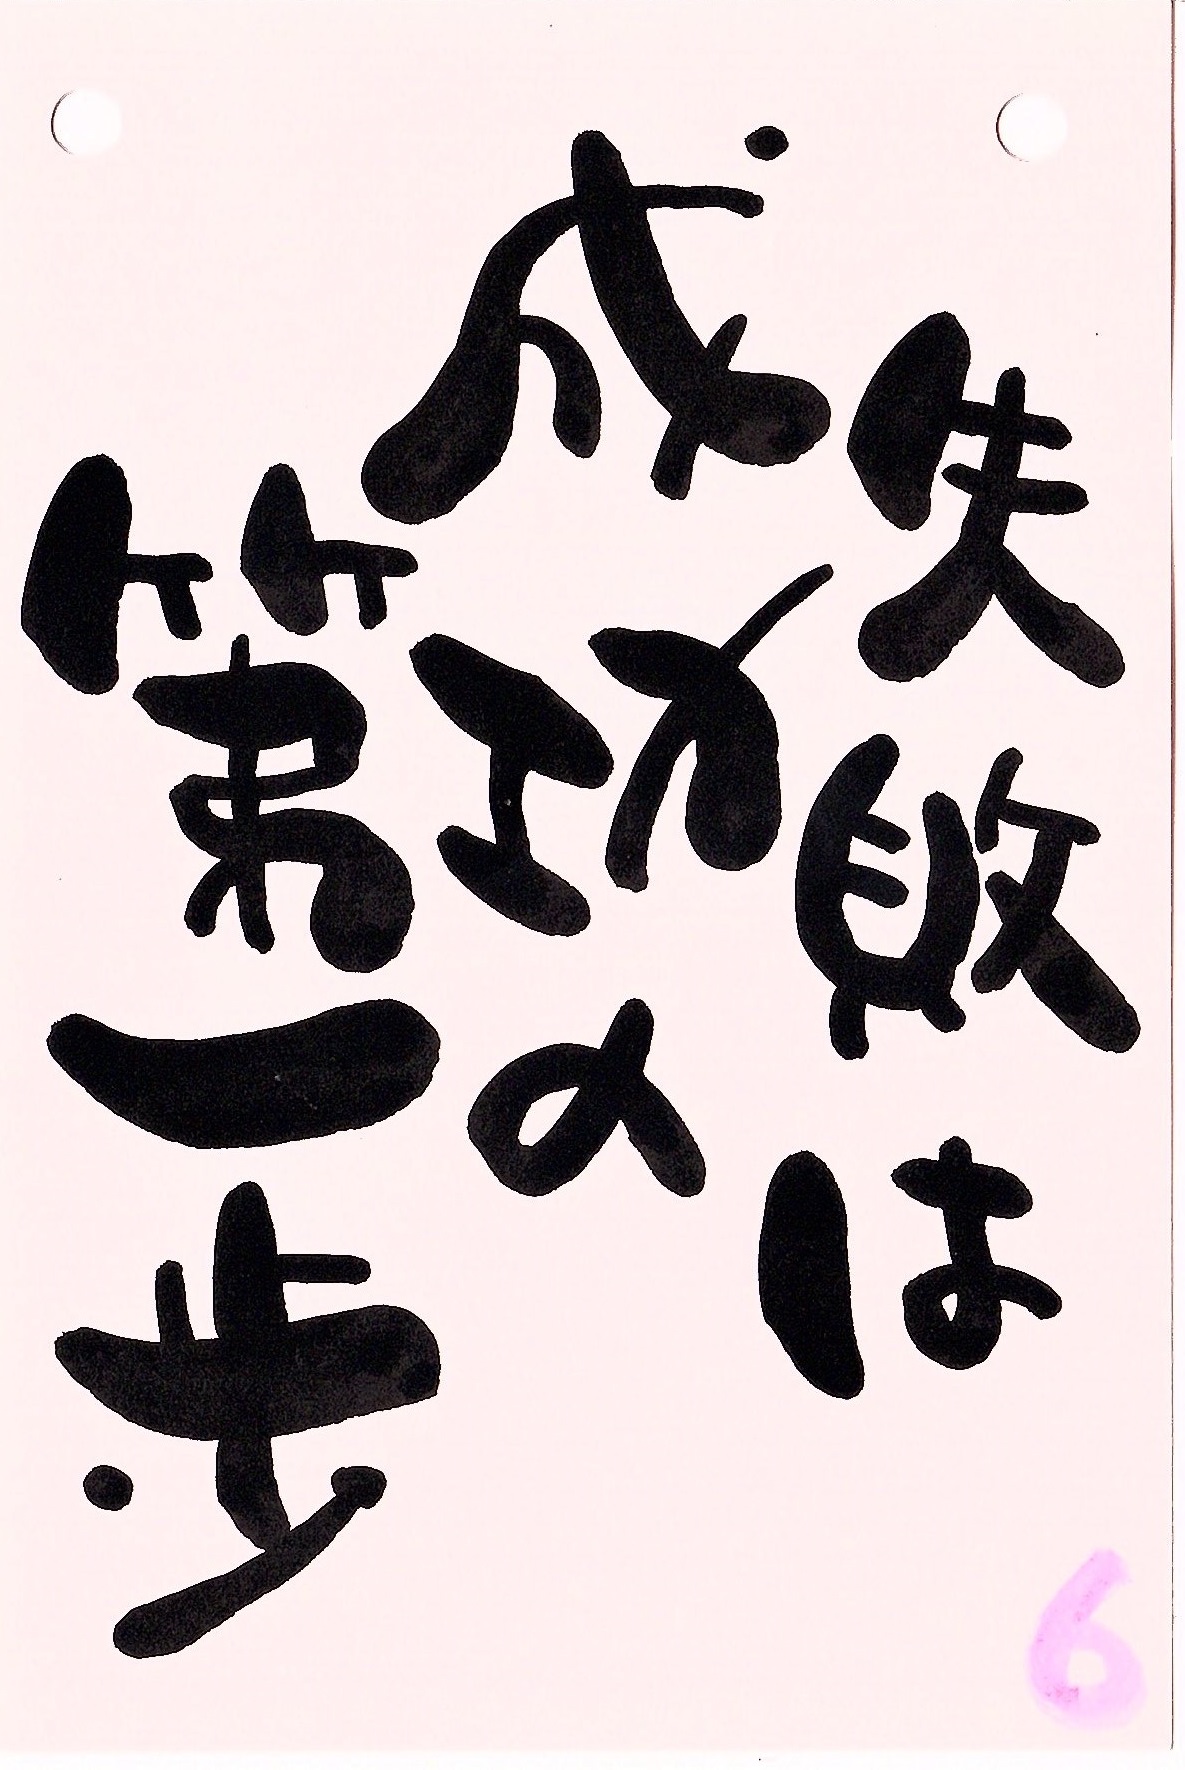 失敗は
成功の
第一歩
6